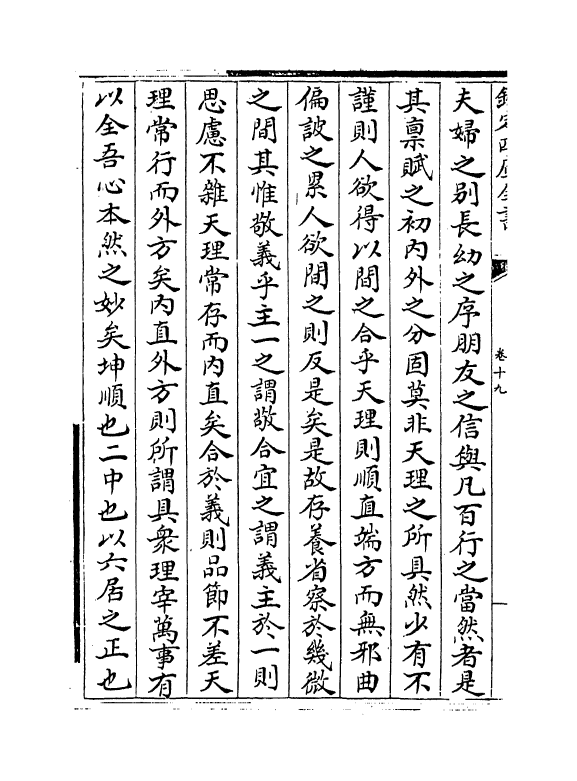 欽定四庫全書
卷十九
夫婦之别長幼之序朋友之信與凡百行之當然者是
其禀賦之初内外之分固莫非天理之所具然少有不
謹則人欲得以間之合乎天理則順直端方而無邪曲
偏詖之累人欲間之則反是矣是故存養省察於幾微
之間其惟敬義乎主一之謂敬合宜之謂義主於一則
思慮不雜天理常存而内直矣合於義則品節不差天
理常行而外方矣内直外方則所謂具衆理宰萬事有
以全吾心本然之妙矣坤順也二中也以六居之正也